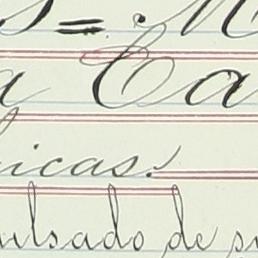 s = M
a Ca
nicas:
ulsado de su